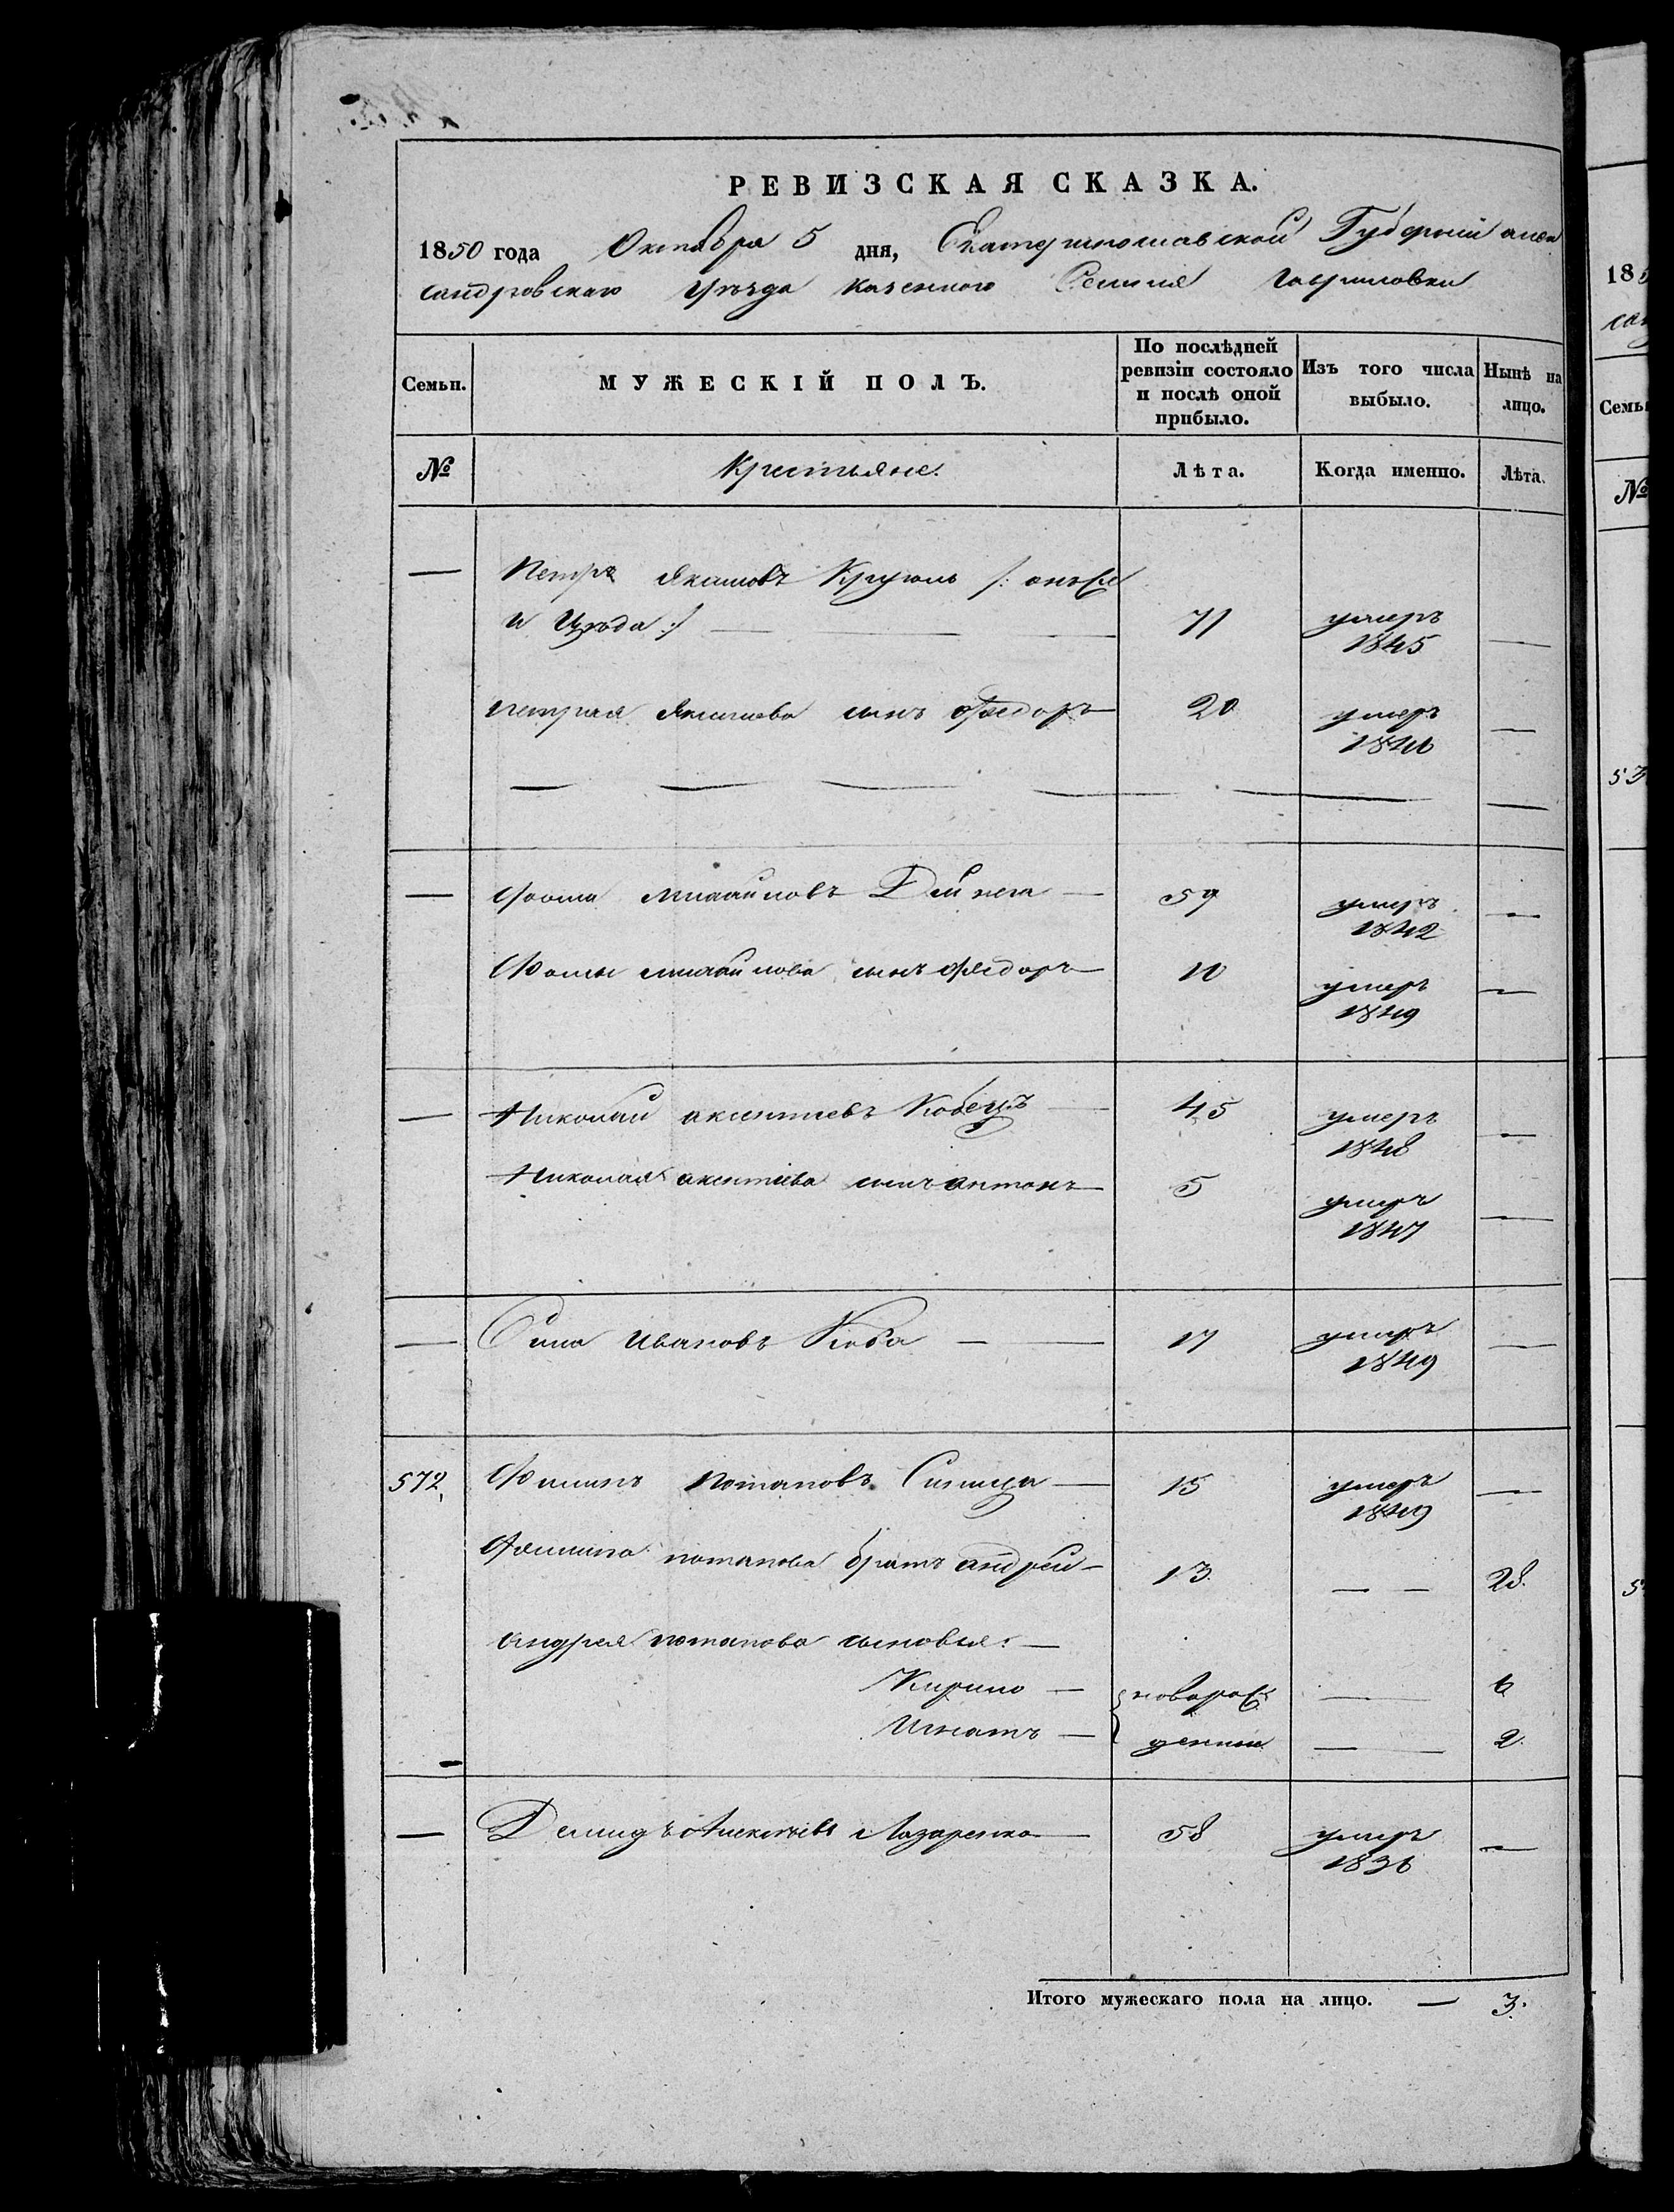 РЕВИЗСКАЯ СКАЗКА.
1850 года Октября 5 дня, Екатеринославской Губерніи алек
сандровскаго уѣзда казенного Селенія Гавриловки
Семьи.
МУЖЕСКІЙ ПОЛЪ.
По послѣдней ревизіи состояло и послѣ оной прибыло.
Изъ того числа выбыло.
Нынѣ на лицо.
№ Крестьяне. Лѣта. Когда именно. Лѣта.
— Петръ Якимовъ /: онъ же
и :/ 71 умеръ 1845 —
петра Якимова сынъ федоръ 20 умеръ 1846 —
— Фома михайловъ Дейнега 59 умеръ 1842 —
Фомы михайлова сынъ федоръ 10 умеръ 1849 —
— Николай аксентиевъ Кобецъ 45 умеръ 1848 —
Николая аксентиева сынъ антонъ 5 умеръ 1847 —
— Сила Ивановъ Коба 17 умеръ 1849 —
572 Филипъ потаповъ Синица 15 умеръ 1849 —
Филипа потапова братъ андрей 13 — — 28.
андрея потапова сыновья:
Кирило — новорож — 6
Игнатъ — денные — 2.
— Демидъ Алексѣевъ Лазаренко 58 умеръ 1836 —
Итого мужескаго пола на лицо. — 3.
18
Семьи
№
53